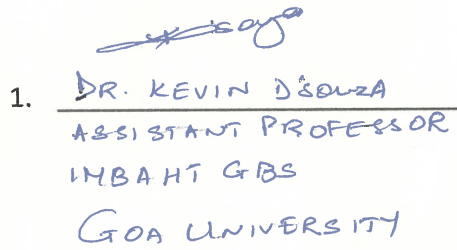 1. DR. KEVIN D'SOUZA
ASSISTANT PROFESSOR
IMBAHT GBS
GOA UNIVERSITY